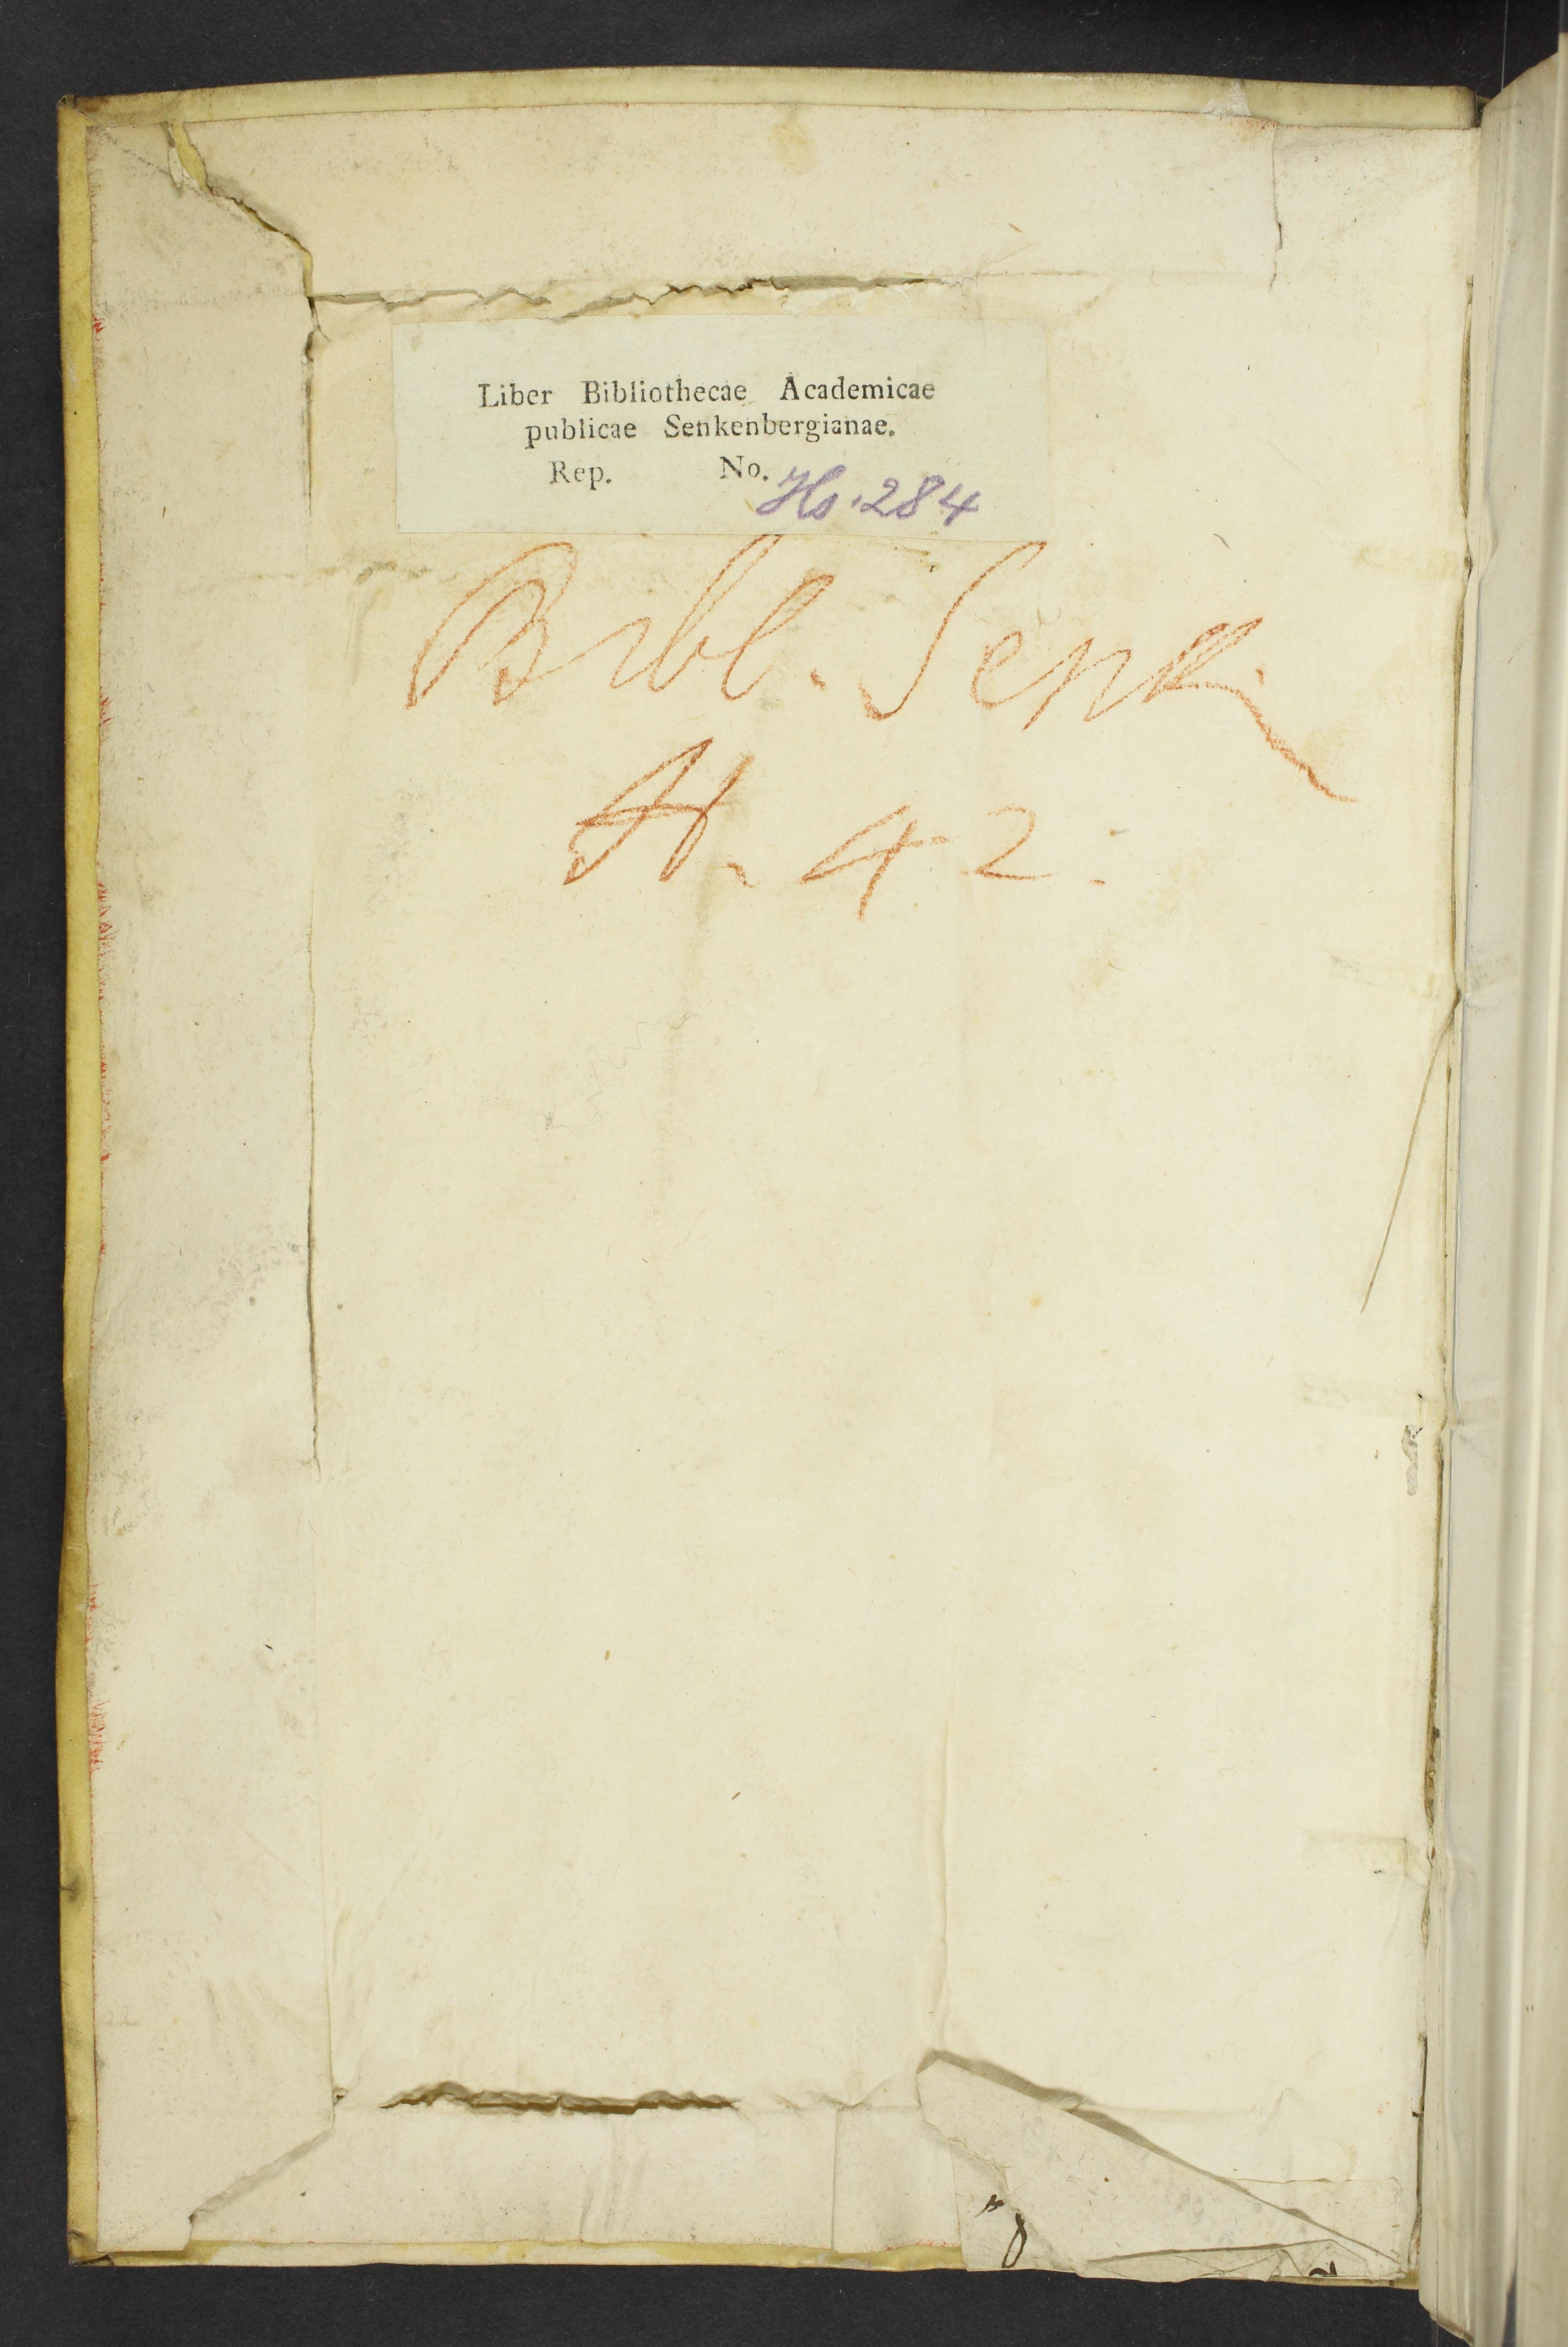 Liber Bibliothecae Academicae
publicae Senkenbergianae.
Rep. No. Hs. 284
Bibl. Senk.
A. 42.